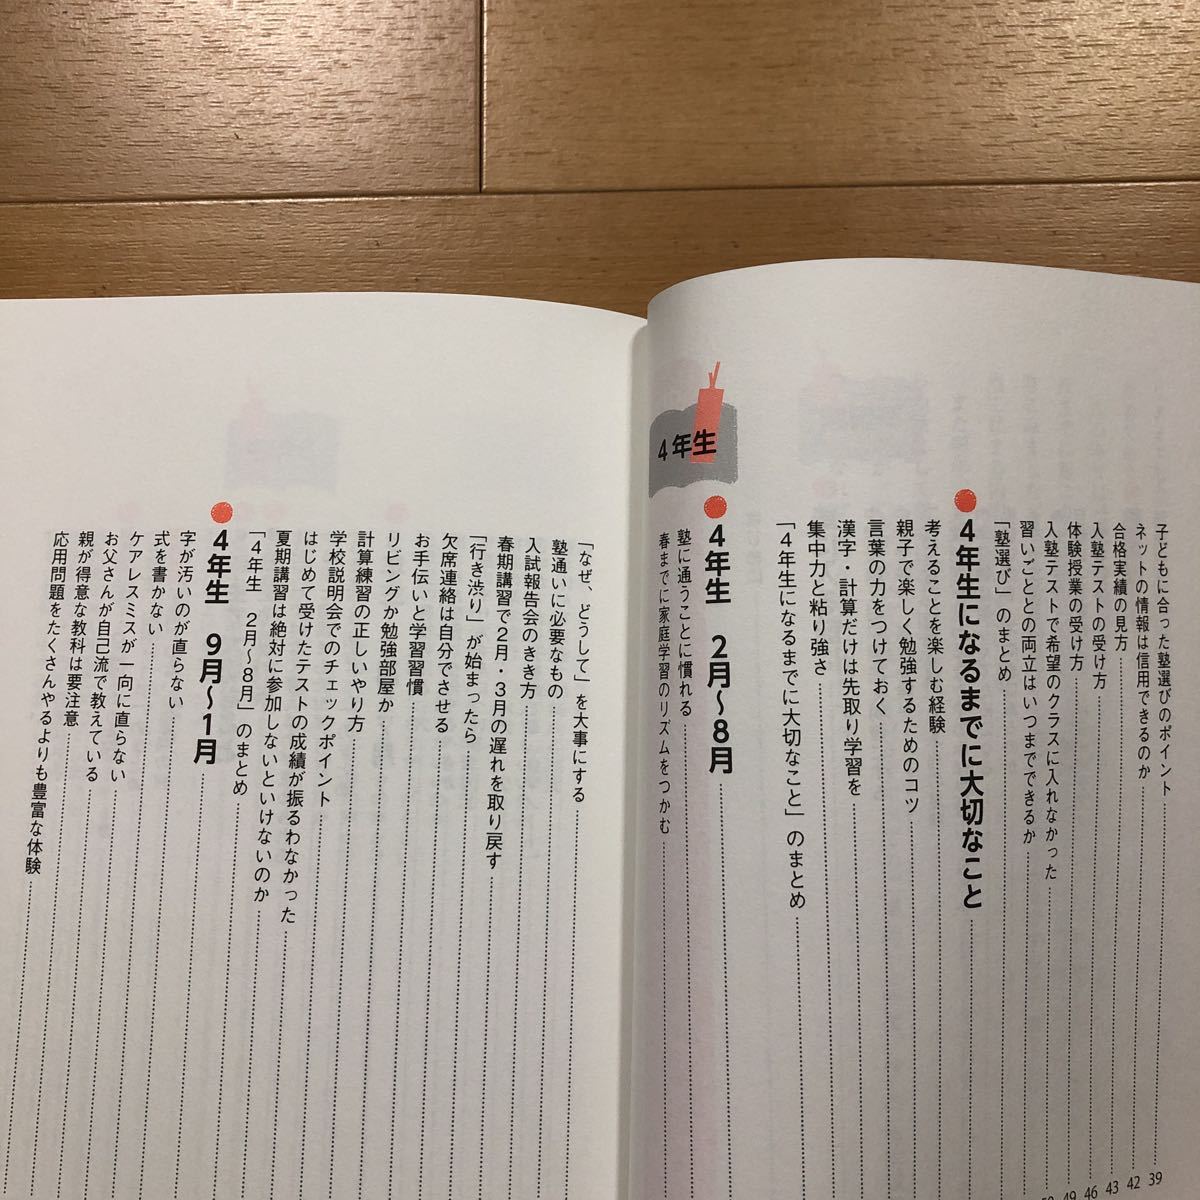 子どもに合った塾選びのポイント 39
ネットの情報は信用できるのか 42
合格実績の見方 43
入塾テストの受け方 46
体験授業の受け方 49
入塾テストで希望のクラスに入れなかった
習いごととの両立はいつまでできるか
「塾選び」のまとめ
4年生になるまでに大切なこと
考えることを楽しむ経験
親子で楽しく勉強するためのコツ
言葉の力をつけておく
漢字・計算だけは先取り学習を
集中力と粘り強さ
「4年生になるまでに大切なこと」のまとめ
4年生
4年生 2月〜8月
塾に通うことに慣れる
春までに家庭学習のリズムをつかむ
「なぜ、どうして」を大事にする
塾通いに必要なもの
入試報告会のきき方
春期講習で2月・3月の遅れを取り戻す
「行き渋り」が始まったら
欠席連絡は自分でさせる
お手伝いと学習習慣
リビングか勉強部屋か
計算練習の正しいやり方
学校説明会でのチェックポイント
はじめて受けたテストの成績が振るわなかった
夏期講習は絶対に参加しないといけないのか
「4年生 2月〜8月」のまとめ
4年生 9月〜1月
字が汚いのが直らない
式を書かない
ケアレスミスが一向に直らない
お父さんが自己流で教えている
親が得意な教科は要注意
応用問題をたくさんやるよりも豊富な体験